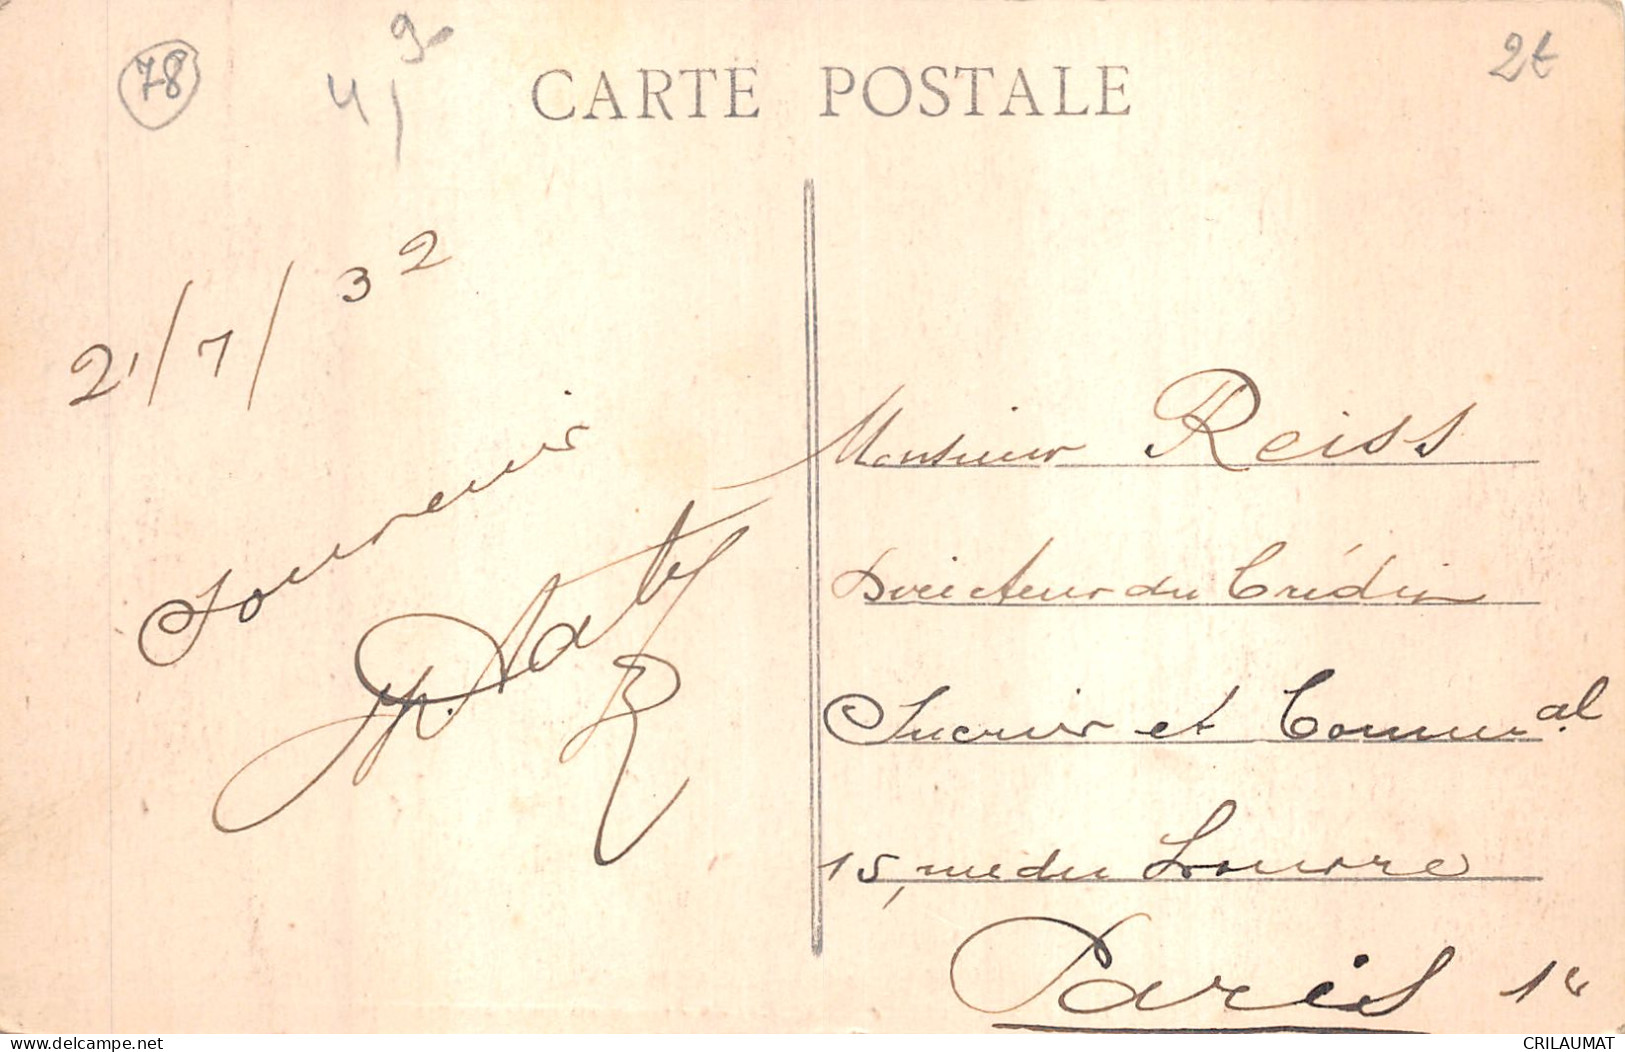 78
49
2€
CARTE POSTALE
21/7/32
Souvenir
Monsieur Reiss
Directeur du Crédit
Sucrier et Commeral
15, rue du Louvre
Paris 1er
www.delcampe.net
CRILAUMAT